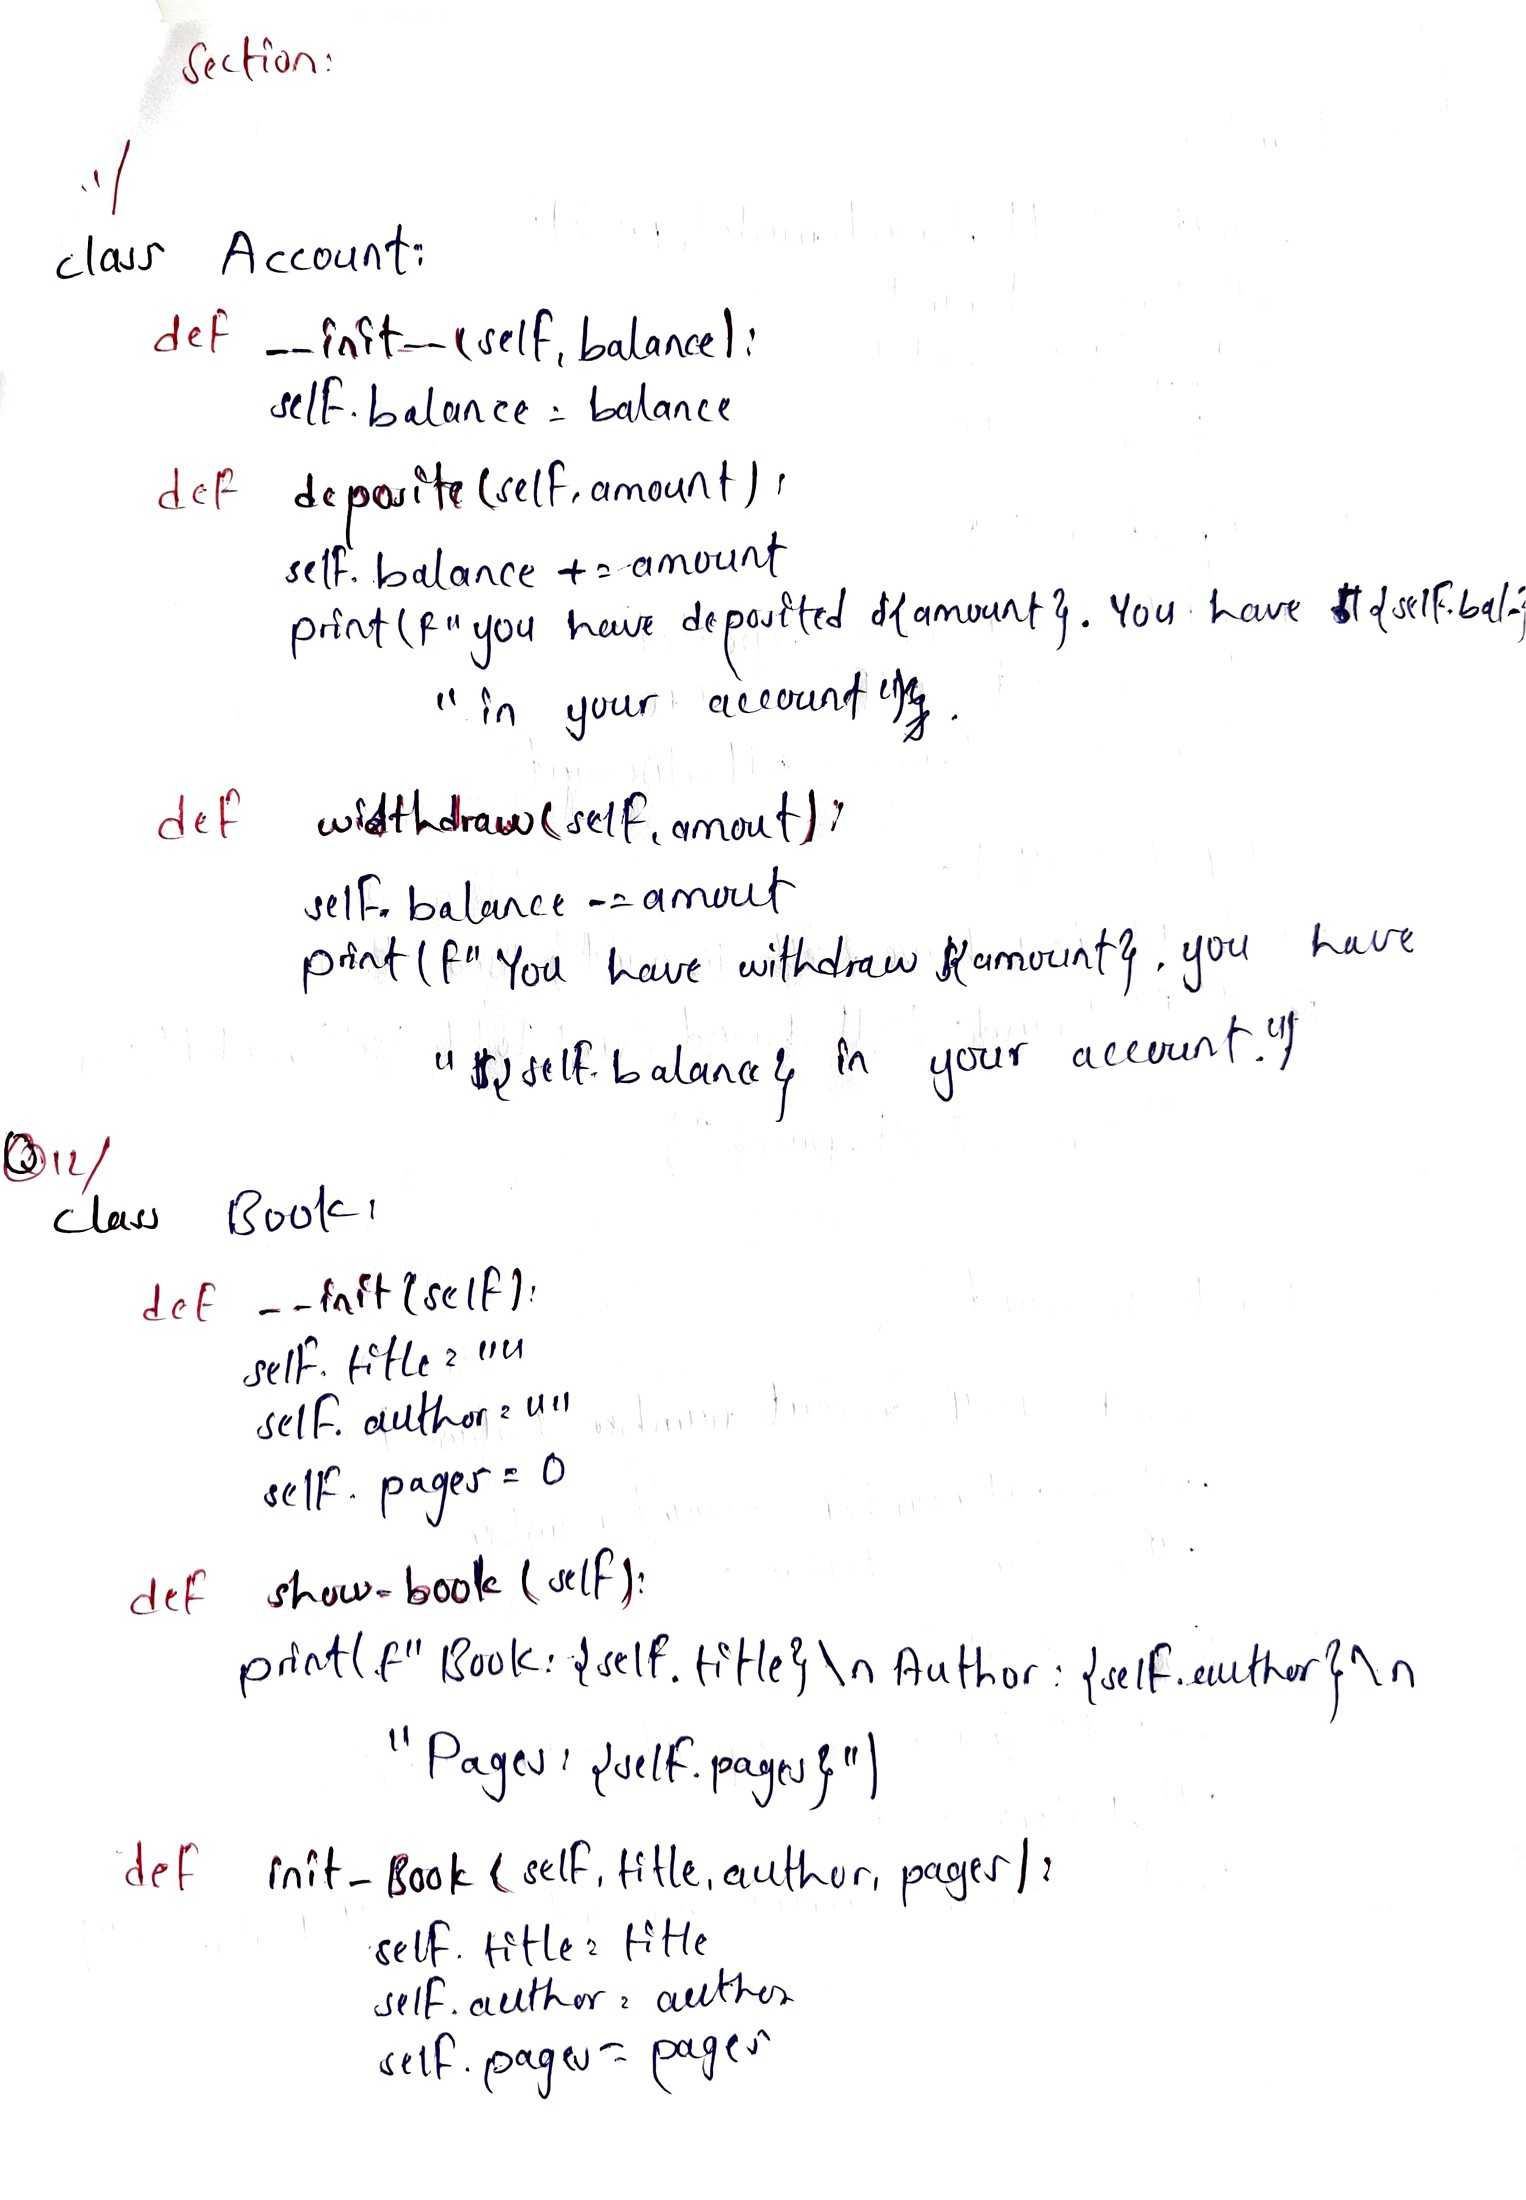 Section:
11/
class Account:
def __init__(self, balance):
self.balance = balance
def deposite(self, amount):
self.balance += amount
print(f"you have deposited ${amount}. You have ${self.bal-}
"in your account").
def widthdraw(self, amout):
self.balance -= amout
print(f"You have withdraw ${amount}, you have
"${self.balance} in your account.")
Q12/
class Book:
def __init(self):
self.title = ""
self.author = ""
self.pages = 0
def show-book(self):
print(f"Book: {self.title}\n Author: {self.author}\n
"Pages: {self.pages}")
def init_Book(self, title, author, pages):
self.title = title
self.author = author
self.pages = pages